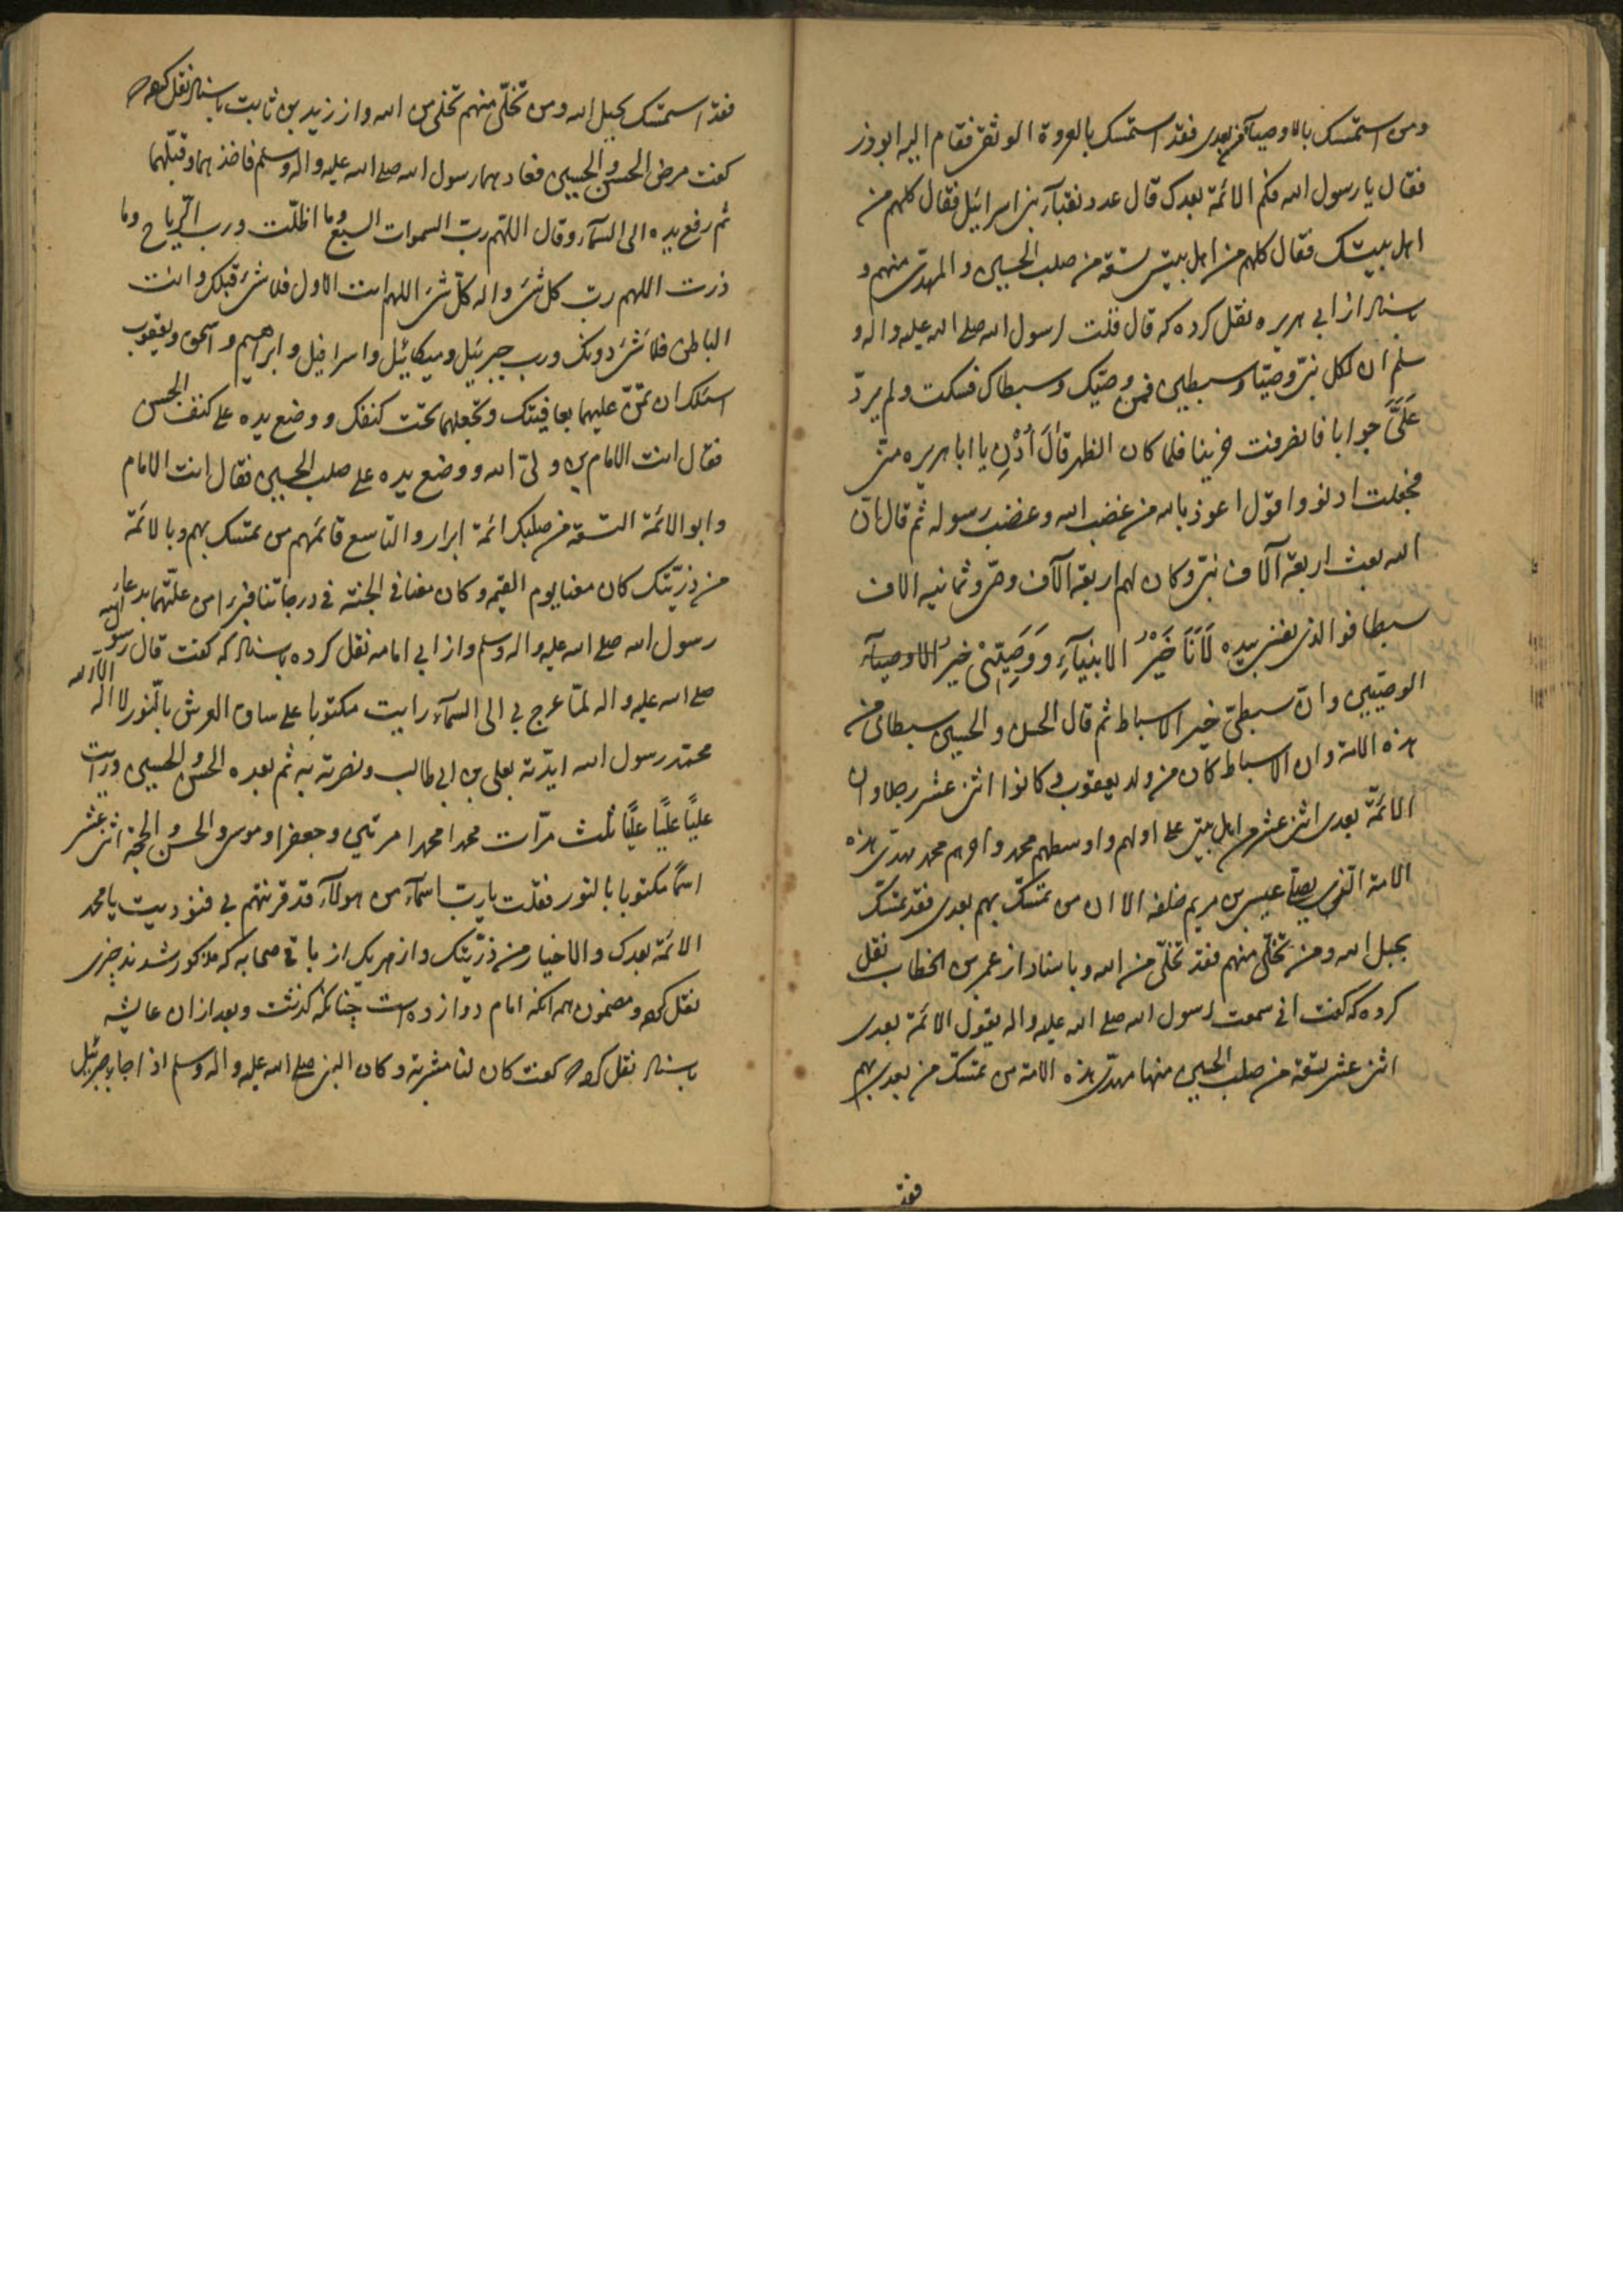 ومن استمسک بالاوصیآء من بعدی فقد استمسک بالعروة الوثقی فقام الیه ابوذر
فقال یا رسول الله فکم الائمة بعدک قال عدد نقبآء بنی اسرائیل فقال کلهم من
اهل بیتک فقال کلهم من اهل بیتی تسعة من صلب الحسین و المهدی منهم و
باسناد از ابی هریره نقل کرده که قال قلت لرسول الله صلی الله علیه واله و
سلم ان لکل نبی وصیّا وسبطین فمن وصیّک وسبطاک فسکت ولم یردّ
عَلَیَّ جوابا فانصرفت حزینا فلما کان الظهر قَالَ اُدْنِ یا ابا هریره منی
فجعلت ادنو واقول اعوذ بالله من غضب الله وغضب رسوله ثم قال انّ
الله بعث اربعة آلاف نبی وکان لهم اربعة آلاف وصی وثمانیه الاف
سبطا فوالذی نفسی بیده لَاَنَا خَیْرُ الانبیآءِ ووَصِیّیْ خیرُ الاوصیآء
الوصیّین وانّ سبطیّ خیر الاسباط ثم قال الحسن و الحسین سبطای من
هذه الامة وان الاسباط کان من ولد یعقوب وکانوا اثنی عشر رجلا وان
الائمّة بعدی اثنی عشر من اهل بیتی علی اولهم واوسطهم محمد واخرهم محمد مهدی هذه
الامة الذی یصلی عیسی بن مریم خلفه الا ان من تمسّک بهم بعدی فقد تمسّک
بحبل الله ومن تخلّی منهم فقد تخلّی من الله وباسناد از عمر بن الخطاب نقل
کرده که گفت انی سمعت رسول الله صلی الله علیه واله یقول الائمة بعدی
اثنی عشر تسعة من صلب الحسین منها مهدی هذه الامة من تمسّک من بعدی بهم
فقد
فقد استمسک بحبل الله ومن تخلّی منهم تخلی من الله واز زید بن ثابت باسناد نقل کرده
گفت مرض الحسن و الحسین فعادهما رسول الله صلی الله علیه واله وسلم فاخذهما وقبّلهما
ثم رفع یده الی السمآء وقال اللهم ربّ السموات السبع وما اظلّت ورب الریاح وما
ذرت اللهم ربّ کل شیٔ واله کلّ شیٔ اللهم انت الاول فلا شیٔ قبلک وانت
الباطن فلا شیٔ دونک ورب جبرئیل ومیکائیل واسرافیل وابراهیم واسحق ویعقوب
اسئلک ان تمنّ علیهما بعافیتک وتجعلهما تحت کنفک ووضع یده علی کتف الحسن
فقال انت الامام بن ولیّ الله ووضع یده علی صلب الحسین فقال انت الامام
وابو الائمة التسعة من صلبک ائمة ابرار والتاسع قائمهم من تمسّک بهم وبالائمة
من ذرّیتک کان معنا یوم القیمه وکان معنا فی الجنة فی درجاتنا من علّتهما بدعاء
رسول الله صلی الله علیه واله وسلم واز ابی امامه نقل کرده باسناد که گفت قال رسول الله
صلی الله علیه واله لمّا عرج بی الی السمآء رایت مکتوبا علی ساق العرش بالنّور لا اله الّا الله
محمّد رسول الله ایّدته بعلی بن ابی طالب ونصرته به ثم بعده الحسن و الحسین ورایت
علیّاً علیّاً علیّاً ثلث مرّات محمدا محمدا مرتین وجعفرا وموسی والحسن و الحجة اثنی عشر
اسماً مکتوبا بالنور فقلت یا ربّ اسمآء من هولآء قد قرنتهم بی فنودیت یا محمد
الائمّة بعدک والاخیار من ذرّیّتک واز هر یک از باقی صحابه که مذکور شدند خبری
نقل کرده ومضمون همه انکه امام دوازده است چنانکه گذشت وبعد از ان عایشه
باسناد نقل کرده گفت کان لنا مشربة وکان النبی صلی الله علیه واله وسلم اذا جاء جبرئیل